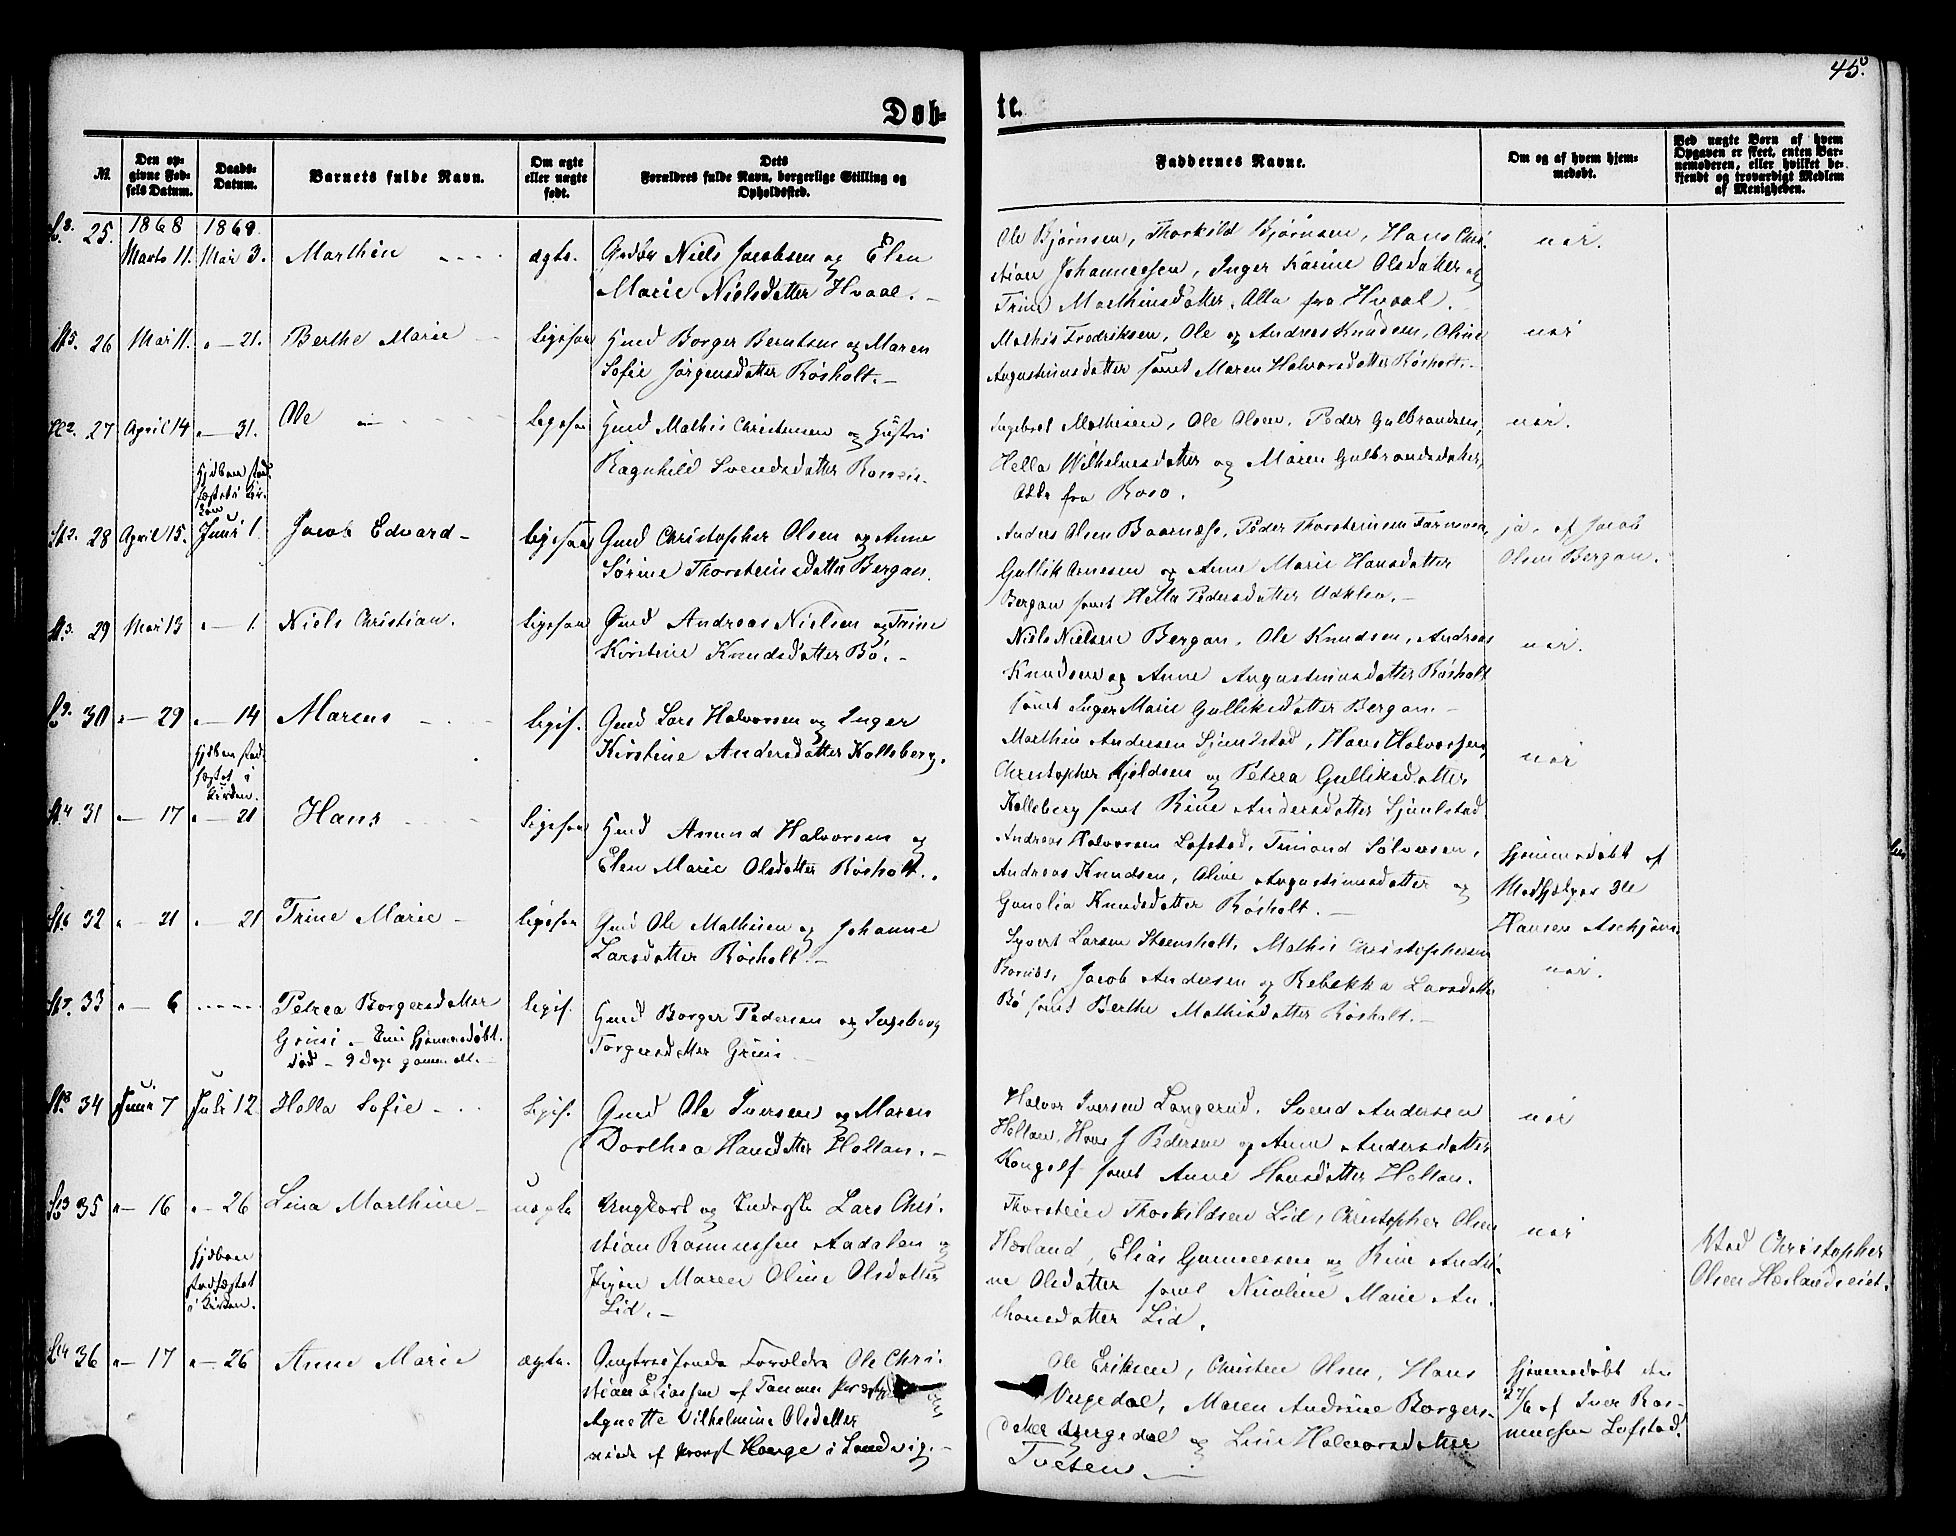 45.
Døb-
te.
№.
Den op-
givne Fød-
sels Datum.
Daabs-
Datum.
Barnets fulde Navn.
Om ægte
eller uægte
født.
Dets
Forældres fulde Navn, borgerlige Stilling og
Opholdssted.
Faddernes Navne.
Om og af hvem hjem-
medøbt.
Ved uægte Børn af hvem
Opgaven er skeet, enten Bar-
nemoderen, eller hvilket be-
kjendt og troværdigt Medlem
af Menigheden.
1868 1869
25. Marts 11. Mai 3. Marthin ægte. Niels Jacobsen og Elen
Marie Nielsdatter Hvaal.
Ole Bjørnsen, Thorkild Bjørnsen, Hans Chri-
stian Johannessen, Inger Karine Olsdatter og
Trine Marthinsdatter. Alle fra Hvaal.
nei.
26 Mai 11. " — 21. Berthe Marie ligesaa Gmd Borger Berntsen og Maren
Sofie Jørgensdatter Røsholt.
Mathis Fredriksen, Ole og Andreas Knudsen, Oline
Augustinusdatter samt Maren Halvorsdatter Røsholt.
nei
27 April 14 " — 31. Ole ligesaa Gmd Mathis Christensen og Hustru
Ragnhild Svendsdatter
Ingebret Mathisen, Ole Olsen, Peder Gulbrandsen,
Hella Wilhelmsdatter og Maren Gulbrandsdatter,
Alle fra
nei.
Hjdben stad-
fæstet i Kir-
ken
28 April 15. Juni 1. Jacob Edvard ligesaa Gmd Christopher Olsen og Anne
Sørine Thorsteinsdatter Bergan.
Anders Olsen Baarnæss, Peder Thorsteinsen
Gullik Arnesen og Anne Marie Hansdatter
Bergan samt Hella Pedersdatter
ja, af Jacob
Olsen Bergan.
29 Mai 13 " — 1. Niels Christian. ligesaa Gmd Andreas Nielsen og Trine
Kirstine Knudsdatter Bø.
Niels Nielsen Bergan, Ole Knudsen, Andreas
Knudsen og Anne Augustinusdatter Røsholt
samt Inger Marie Gulliksdatter Bergan.
nei.
30 " — 29 " — 14 Marcus liges. Gmd Lars Halvorsen og Inger
Kirstine Andersdatter Kolleberg.
Marthin Andersen Sjuulstad, Hans Halvorsen,
Christopher Kjeldsen og Petrea Gulliksdatter
Kolleberg samt Rine Andersdatter Sjuulstad.
nei
Hjdben stad-
fæstet i
Kirken.
31 " — 17 " — 21 Hans ligesaa Gmd Amund Halvorsen og
Elen Marie Olsdatter Røsholt.
Andreas Halvorsen Løfstad, Sølvesen,
Andreas Knudsen, Oline Augustinusdatter og
Gunelia Knudsdatter Røsholt.
Hjemmedøbt af
Medhjelper Ole
Hansen
32 " — 21 " — 21 Trine Marie ligesaa Gmd Ole Mathisen og Johanne
Larsdatter Røsholt.
Syvert Larsen Steensholt, Mathis Christophersen
Jacob Andersen og Rebekka Larsdatter
Bø samt Berthe Mathisdatter Røsholt.
nei.
33 " — 6 Petrea Borgersdatter
Hjemmedøbt.
død — 9 dage gammelt.
ligis. Gmd Borger Pedersen og Ingeborg
Torgersdatter
34 Juni 7 Juli 12 Hella Sofie ligis. Gmd Ole Iversen og Maren
Dorthea Hansdatter Holtan.
Halvor Iversen Langerud, Svend Andersen
Holtan, Hans J Pedersen og Anne Andersdatter
samt Anne Hansdatter Holtan.
nei
35 " — 16 " — 26 Lina Marthine uægte Ungkarl og Lars Chri-
stian Rasmussen Aadalen og
Pigen Maren Oline Olsdatter
Lid.
Thorstein Thorkildsen Lid, Christopher Olsen
Hæsland, Elias Gunnersen og Rine Andri-
ne Olsdatter samt Nicoline Marie An-
thonsdatter Lid.
nei
Ved Christopher
Olsen
Hjdben
stadfæstet
i Kirken.
36 " — 17 " — 26 Anne Marie ægte. Forældre Ole Chri-
stian Eliassen af
Agnette Vilhelmine Olsdatter
viede af Provst Hauge i Sandvig.
Ole Eriksen, Christen Olsen, Hans
Vergedal, Maren Andrine Borgers-
datter Vergedal og Line Halvorsdatter
Tveten.
Hjemmedøbt den
27/6 af Iver Ras-
mussen Løfstad.